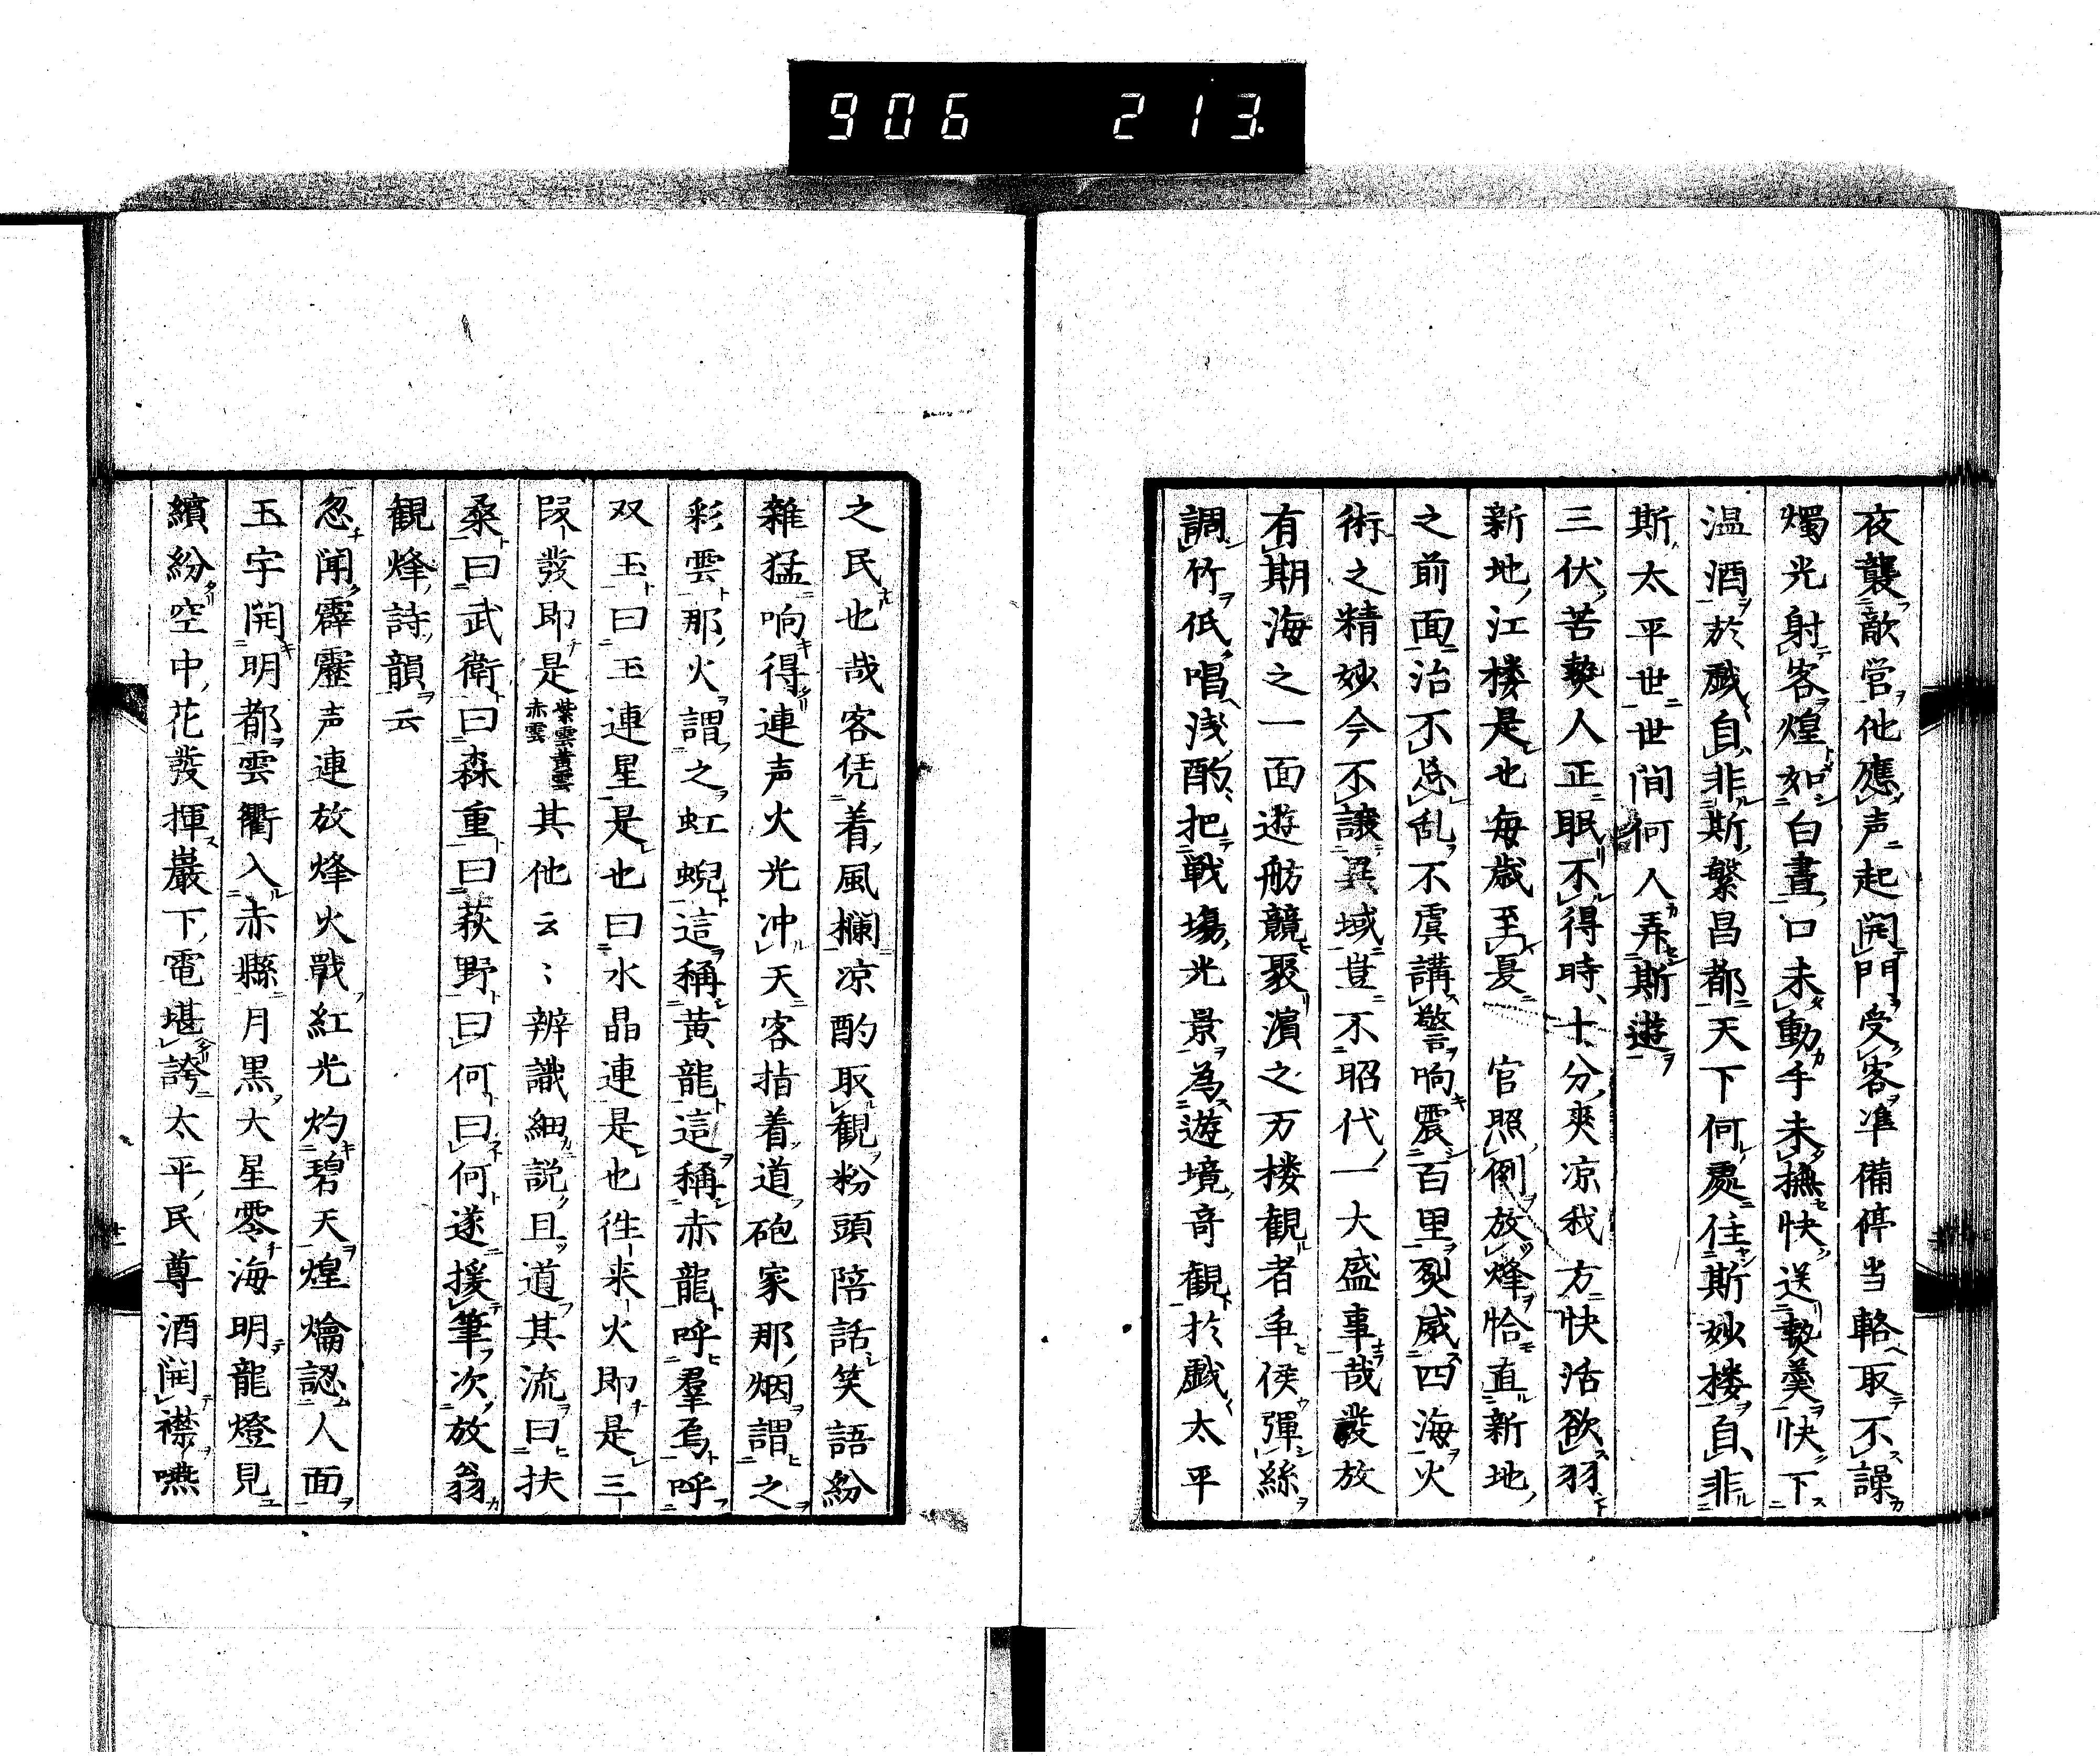 906 213
夜襲敵営他應声起開門受客準備停当輅取不譟
燭光射客煌如白晝口未動手未撫快送熱羹快下
温酒於戯自非斯繁昌都天下何處住斯妙楼自非
斯太平世世間何人弄斯遊
三伏苦熱人正眠不得時十分爽凉我方快活欲羽
新地江楼是也毎歳至夏 官照例放烽恰直新地
之前面治不忘乱不虞講警响震百里烈威四海火
術之精妙今不譲異域豈不昭代一大盛事哉発放
有期海之一面遊舫競聚濱之万楼観者争候弾絲
調竹低唱浅酌把戦場光景為遊境奇観於戯太平
之民也哉客凭着風欄凉酌取観粉頭陪話笑語紛
雜猛响得連声火光冲天客指着道砲家那烟謂之
彩雲那火謂之虹蜺這稱黄龍這稱赤龍呼羣烏呼
双玉曰玉連星是也曰水晶連是也徃来火即是三
段發即是紫雲黄雲赤雲其他云〻辨識細説且道其流曰扶
桑曰武衛曰森重曰荻野曰何曰何遂援筆次放翁
観烽詩韻云
忽聞霹靂声連放烽火戰紅光灼碧天煌爚認人面
玉宇開明都雲衢入赤縣月黒大星零海明龍燈見
繽紛空中花發揮巖下電堪誇太平民尊酒開襟嚥